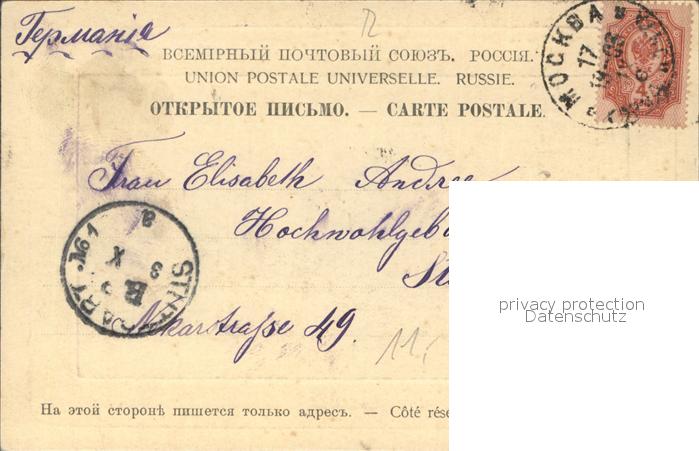 Германія
ВСЕМІРНЫЙ ПОЧТОВЫЙ СОЮЗЪ. РОССІЯ.
UNION POSTALE UNIVERSELLE. RUSSIE.
ОТКРЫТОЕ ПИСЬМО. — CARTE POSTALE.
МОСКВА
17
4
Frau Elisabeth Andree
Hochwohlgeb
St
STUTTGART. №1
3
X
Nekarstrasse 49.
11
privacy protection
Datenschutz
На этой сторонѣ пишется только адресъ. — Côté rése